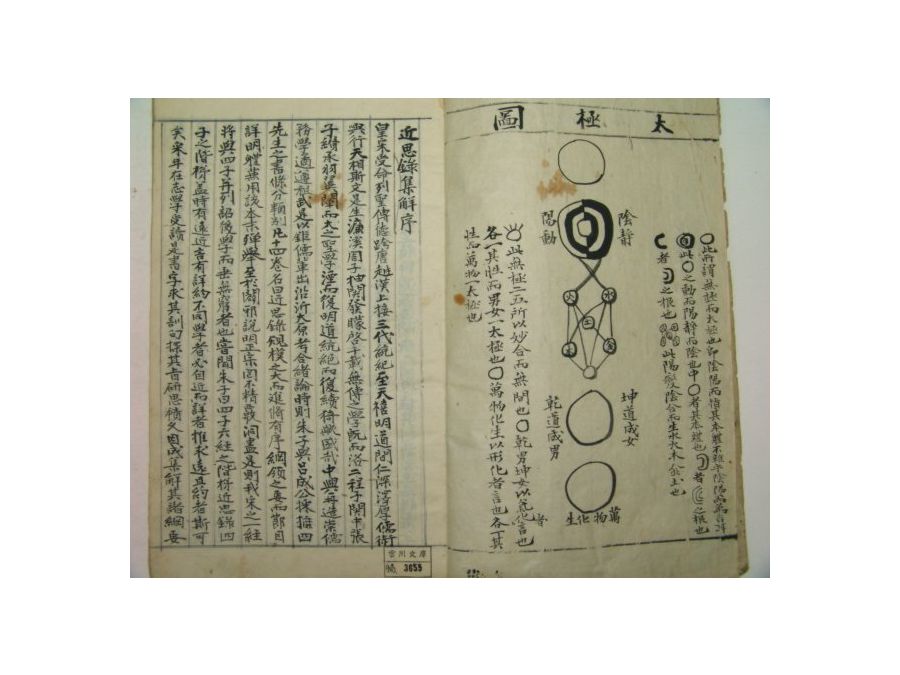 太極圖
〇此所謂無極而太極也卽陰陽而指其本體不雜乎陰陽而爲言耳
此〇之動而陽靜而陰也中〇者其本體也者之根也
者之根也此陽變陰合而生水火木金土也
陰靜
陽動
水
火
土
金
木
坤道成女
乾道成男
萬物化生
此無極二五所以妙合而無間也〇乾男坤女以氣化者言也
各一其性而男女一太極也〇萬物化生以形化者言也各一其
性而萬物一太極也
近思錄集解序
皇宋受命列聖傳德跨唐越漢上接三代統紀至天禧明道間仁深澤厚儒術
興行天相斯文是生濂溪周子抽關發矇啓千載無傳之學旣而洛二程子關中張
子纘承羽翼闡而大之聖學湮而復明道統絶而復續猗歟盛哉中興再造崇儒
務學遹遵祖武是以鉅儒輩出沿泝大原考合緒論時則朱子與呂成公採摭四
先生之書條分類別凡十四卷名曰近思錄規模之大而進脩有序綱領之要而節目
詳明體兼用該本末殫擧至於闢邪說明正宗罔不精覈洞盡是則我宋之一經
將與四子幷列詔後學而垂無窮者也嘗聞朱子曰四子六經之階梯近思錄四
子之階梯盖時有遠近言有詳約不同學者必自近而詳者推求遠且約者斯可
矣采年在志學受讀是書字求其訓句探其旨研思積久因成集解其諸綱要
文庫
3655